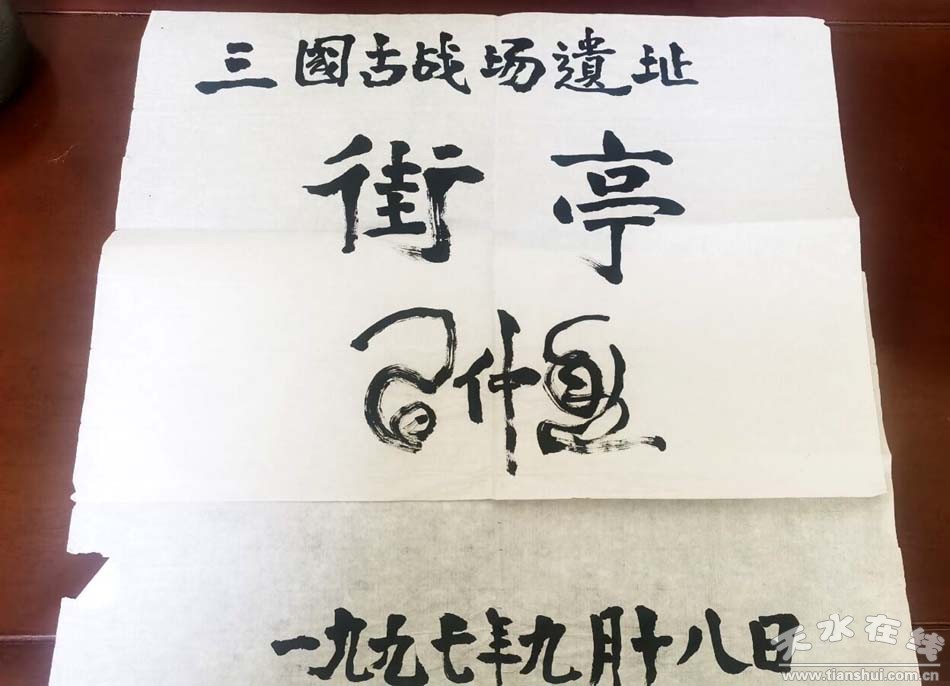 三國古战场遺址
街亭
一九九七年九月十八日
天水在线
www.tianshui.com.cn